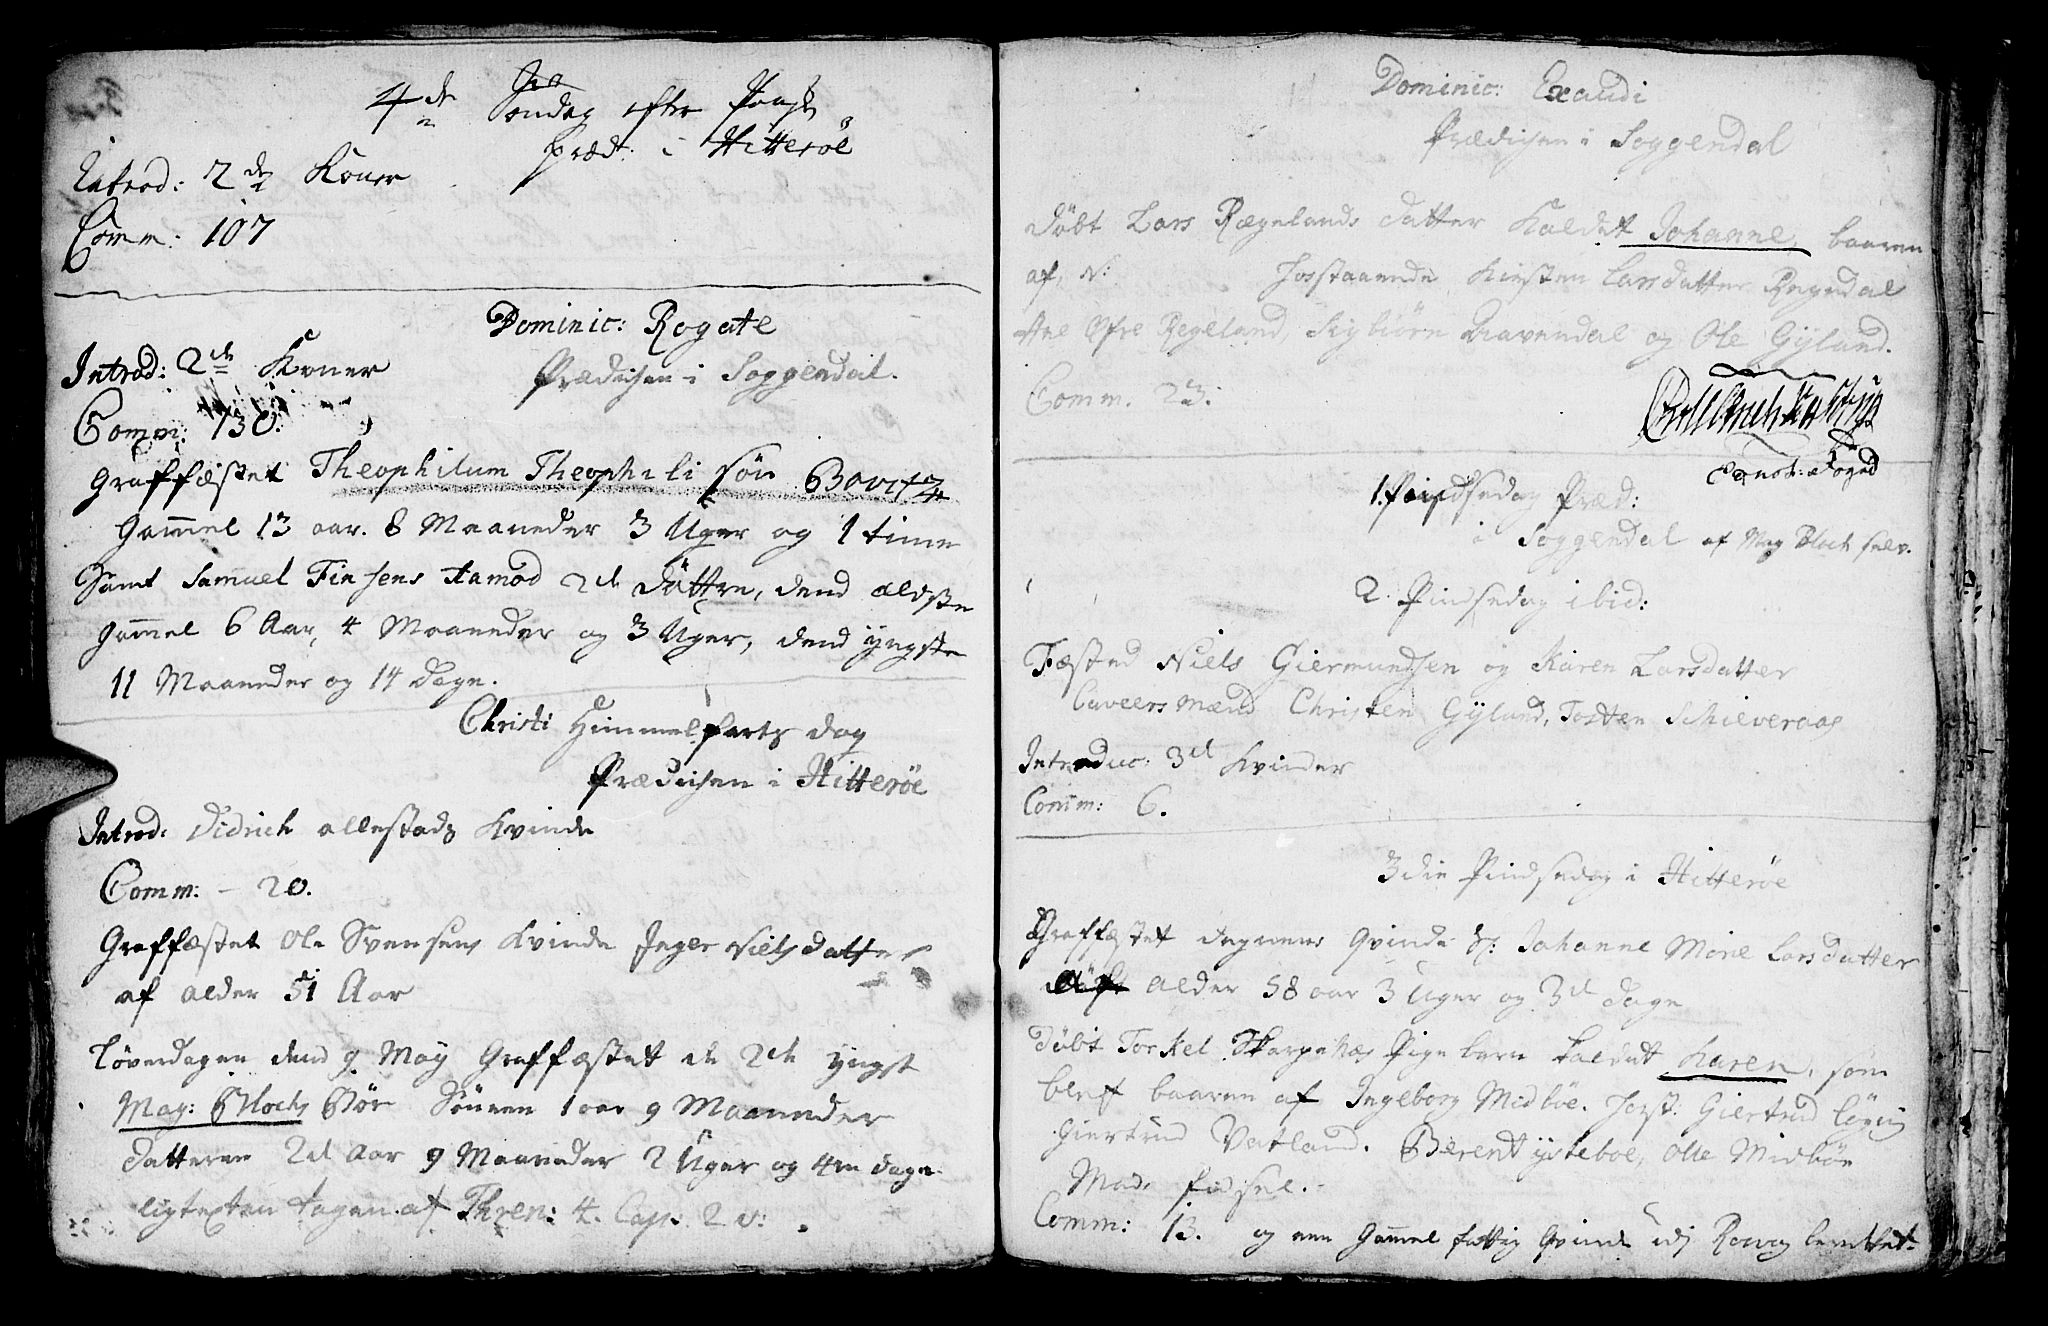 4de Søndag efter Paasche
Præd: i Hitterøe
Introd: 2de Koner
Comm: 107
Dominic: Rogate
Introd: 2de Koner
Prædichen i Soggendal.
Comm: 130.
Graffæstet Theophilum Theophili søn Bowitz
Gam̄el 13 aar. 8 Maaneder 3 Uger og 1 time
Samt Samuel Finsens Aamod 2de Døttre, dend ældste
Gam̄el 6 Aar, 4 Maaneder og 3 Uger, dend yngste
11 Maaneder og 14 dage.
Christi Himmelfarts dag
Prædichen i Hitterøe
Introd: Didrich allestads Kvinde
Comm: - 20.
Graffæstet Ole Svensens Kvinde Inger Nielsdatter
af alder 51 Aar
Løverdagen dend 9 May Graffæstet de 2de yngst
Mag: Blochs Bør Sønnen 1 aar 9 Maaneder
datteren 2de Aar 9 Maaneder 2 Uger og 4re dage
ligtexten tagen af Thren: 4. Cap: 2 v:
Dominic: Exaudi
Prædichen i Soggendal
døbt Lars Rægelands datter Kaldet Johanne baaren
af N: Forstaaende Kirsten Larsdatter Regedal
Ane Øfre Regeland, Sigbiørn Davendal og Ole Gyland.
Comm. 23.
Const: Foged
1. Pindsedag Præd:
i Soggendal af Mag Bloch selv.
2. Pindsedag ibid:
Fæsted Niels Giermundsen og Karen Larsdatter
Caveers mænd Christen Gyland, Tosten Schieveraas
Introduc: 3de Kvinder
Comm: 6.
3die Pindsedag i Hitterøe
Graffæstet degnens Qvinde S: Johanne Marie Larsdatter
af alder 58 aar 3 Uger og 3de dage
døbt Torkel Skarpenæs Pige barn kaldet Karen, som
blef baaren af Ingeborg Midbøe. Forst: Giertrud Løgin
Giertrud Vatland. Berent ysteboe, Olle Midbøe
Mads fidsel.
Comm: 13. og een Gam̄el fattig Qvinde udj Roevog berettet.